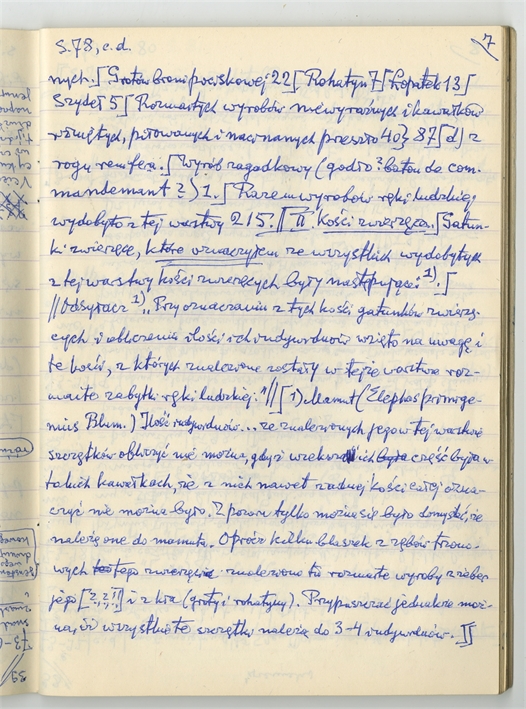 S. 78, c.d.
7
nych.[Grotów broni pociskowej 22[Rohatyn 7[Łopatek 13[
Szydeł 5[Rozmaitych wyrobów niewyraźnych i kawałków
rżniętych, piłowanych i nacinanych przeszło 40} 87[d) z
rogu renifera.[Wyrób zagadkowy (godło? baton de com-
mandemant?) 1.[Razem wyrobów ręki ludzkiej
wydobyto z tej warstwy 215.[[II. Kości zwierzęce.[Gatun-
ki zwierzęce, które oznaczyłem ze wszystkich wydobytych
z tej warstwy kości zwierzęcych były następujące 1).[
//Odsyłacz 1) „Przy oznaczaniu z tych kości gatunków zwierzę-
cych i obliczeniu ilości ich indywiduów wzięto na uwagę i
te kości, z których znalezione zostały w tejże warstwie roz-
maite zabytki ręki ludzkiej."//[1) Mamut (Elephas primige-
nius Blum.) Ilość indywiduów... ze znalezionych jego w tej warstwie
szczątków obliczyć nie można, gdyż większa ich była część była w
takich kawałkach, że z nich nawet żadnej kości całej ozna-
czyć nie można było. Z pozoru tylko można się było domyślać, że
należą one do mamuta. Oprócz kilku blaszek z zębów trzono-
wych tego zwierzęcia znaleziono tu rozmaite wyroby z żeber
jego [?,?,!] i z kła (groty i rohatyny). Przypuszczać jednakże moż-
na, iż wszystkie te szczątki należą do 3-4 indywiduów. ]]